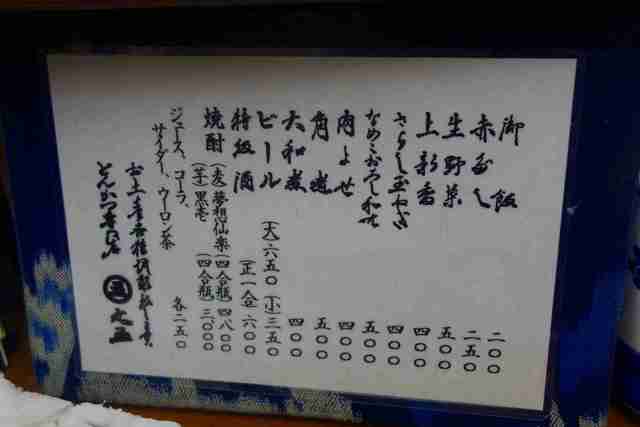 御飯 二〇〇
赤だし 二五〇
生野菜 五〇〇
上新香 四〇〇
さらし玉ねぎ 四〇〇
なめこおろし和え 五〇〇
肉よせ 四〇〇
角煮 五〇〇
大和煮 四〇〇
ビール (大)六五〇 (小)三五〇
特級酒 (正一合)六〇〇
焼酎 (麦)夢想仙楽(四合瓶)四八〇〇
(芋)黒壱 (四合瓶)三〇〇〇
ジュース、コーラ、
サイダー、ウーロン茶 各二五〇